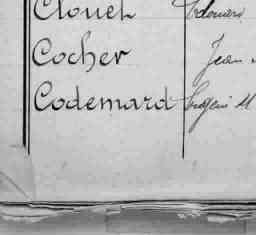 Clouet Edouard
Cocher Jean
Codemard Eugène M